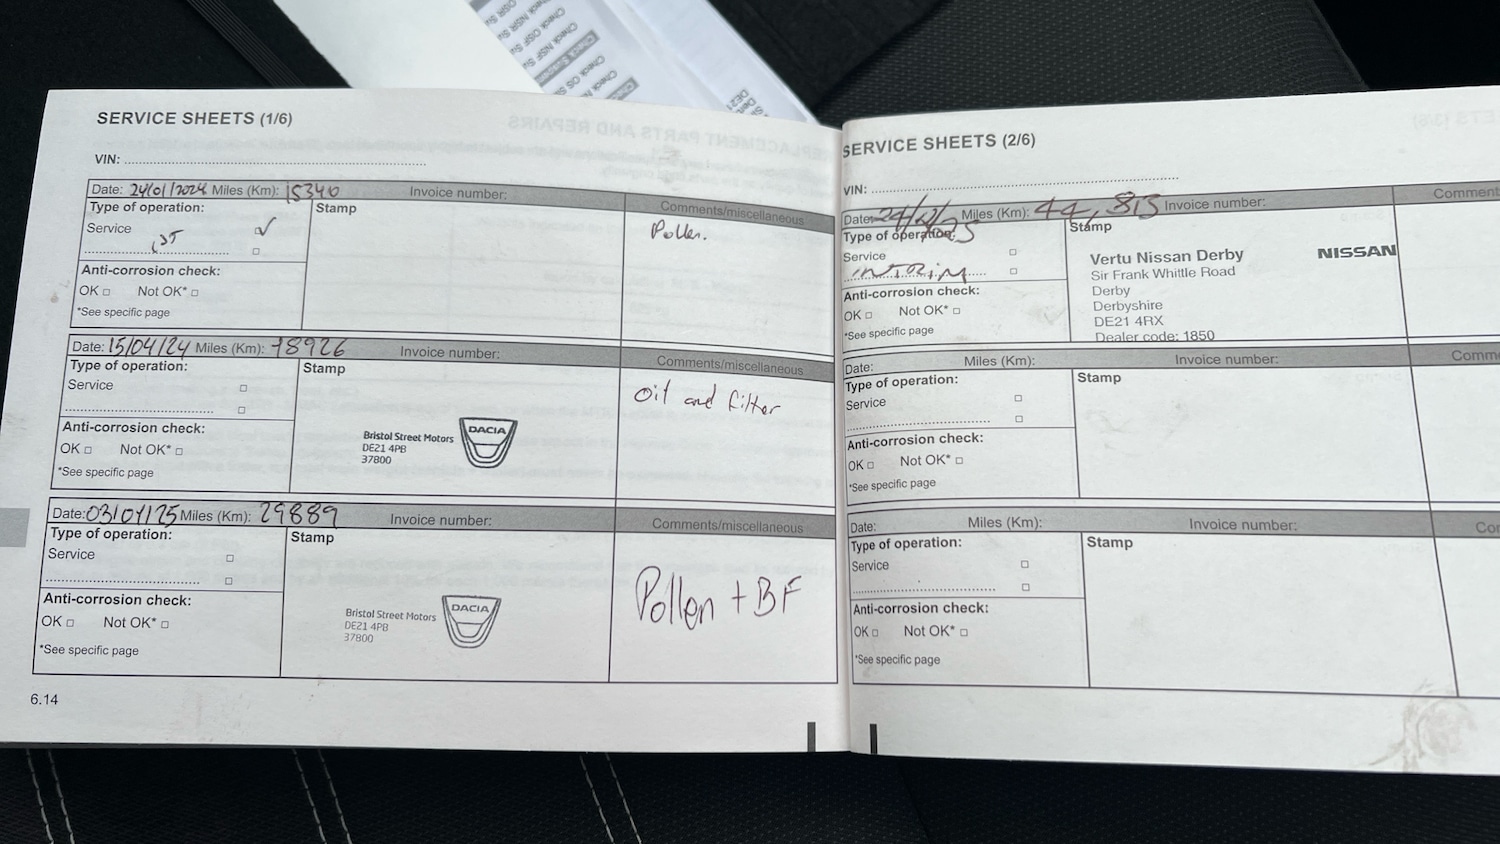 SERVICE SHEETS (1/6)
VIN:
Date: 24/01/2024 Miles (Km): 15346 Invoice number:
Comments/miscellaneous
Type of operation:
Service ✓
1ST
Stamp
Pollen.
Anti-corrosion check:
OK □ Not OK* □
*See specific page
Date: 15/04/24 Miles (Km): 18926 Invoice number:
Comments/miscellaneous
Type of operation:
Service □
Stamp
Oil and filter
Bristol Street Motors
DE21 4PB
37800
DACIA
Anti-corrosion check:
OK □ Not OK* □
*See specific page
Date: Miles (Km): 29889 Invoice number:
Comments/miscellaneous
Type of operation:
Service □
Stamp
Pollen + BF
Bristol Street Motors
DE21 4PB
37800
DACIA
Anti-corrosion check:
OK □ Not OK* □
*See specific page
6.14
SERVICE SHEETS (2/6)
VIN:
Date: Miles (Km): 44,815 Invoice number:
Comment
Type of operation:
Service □
INTERIM
Stamp
Vertu Nissan Derby
Sir Frank Whittle Road
Derby
Derbyshire
DE21 4RX
Dealer code: 1850
NISSAN
Anti-corrosion check:
OK □ Not OK* □
*See specific page
Date: Miles (Km): Invoice number:
Comme
Type of operation:
Service □
Stamp
Anti-corrosion check:
OK □ Not OK* □
*See specific page
Date: Miles (Km): Invoice number:
Co
Type of operation:
Service □
Stamp
Anti-corrosion check:
OK □ Not OK* □
*See specific page